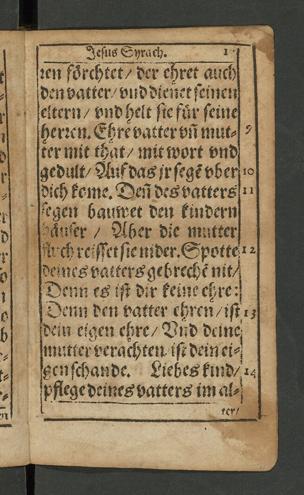 Jesus Syrach. 1
ren förchtet / der ehret auch
den vatter / vnd dienet seinen
eltern / vnd helt sie für seine
herren. Ehre vatter vñ mut- 9
ter mit that / mit wort vnd
gedult / Auf das jr segē vber 10
dich kome. Deñ des vatters 11
segen bauwet den kindern
häuser / Aber die mutter
fluch reisset sie nider. Spotte 12
deines vatters gebrechē nit /
Denn es ist dir keine ehre:
Denn den vatter ehren / ist 13
dein eigen ehre / Vnd deine
mutter verachten / ist dein ei-
gen schande. Liebes kind / 14
pflege deines vatters im al-
ter /